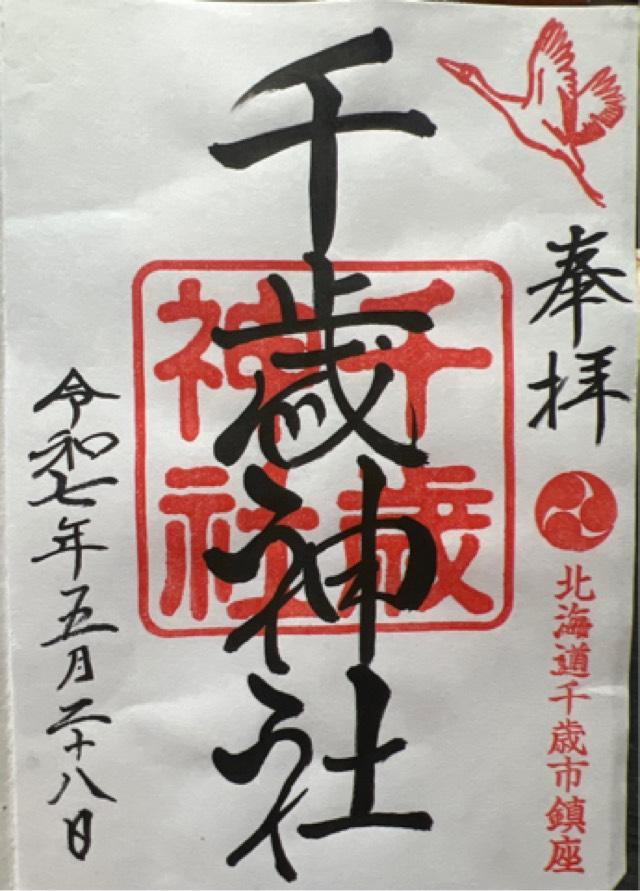 奉拝
北海道千歳市鎮座
千歳神社
千歳
神社
令和七年五月二十八日